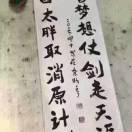 曾梦想仗剑走天涯
因太胖取消原计